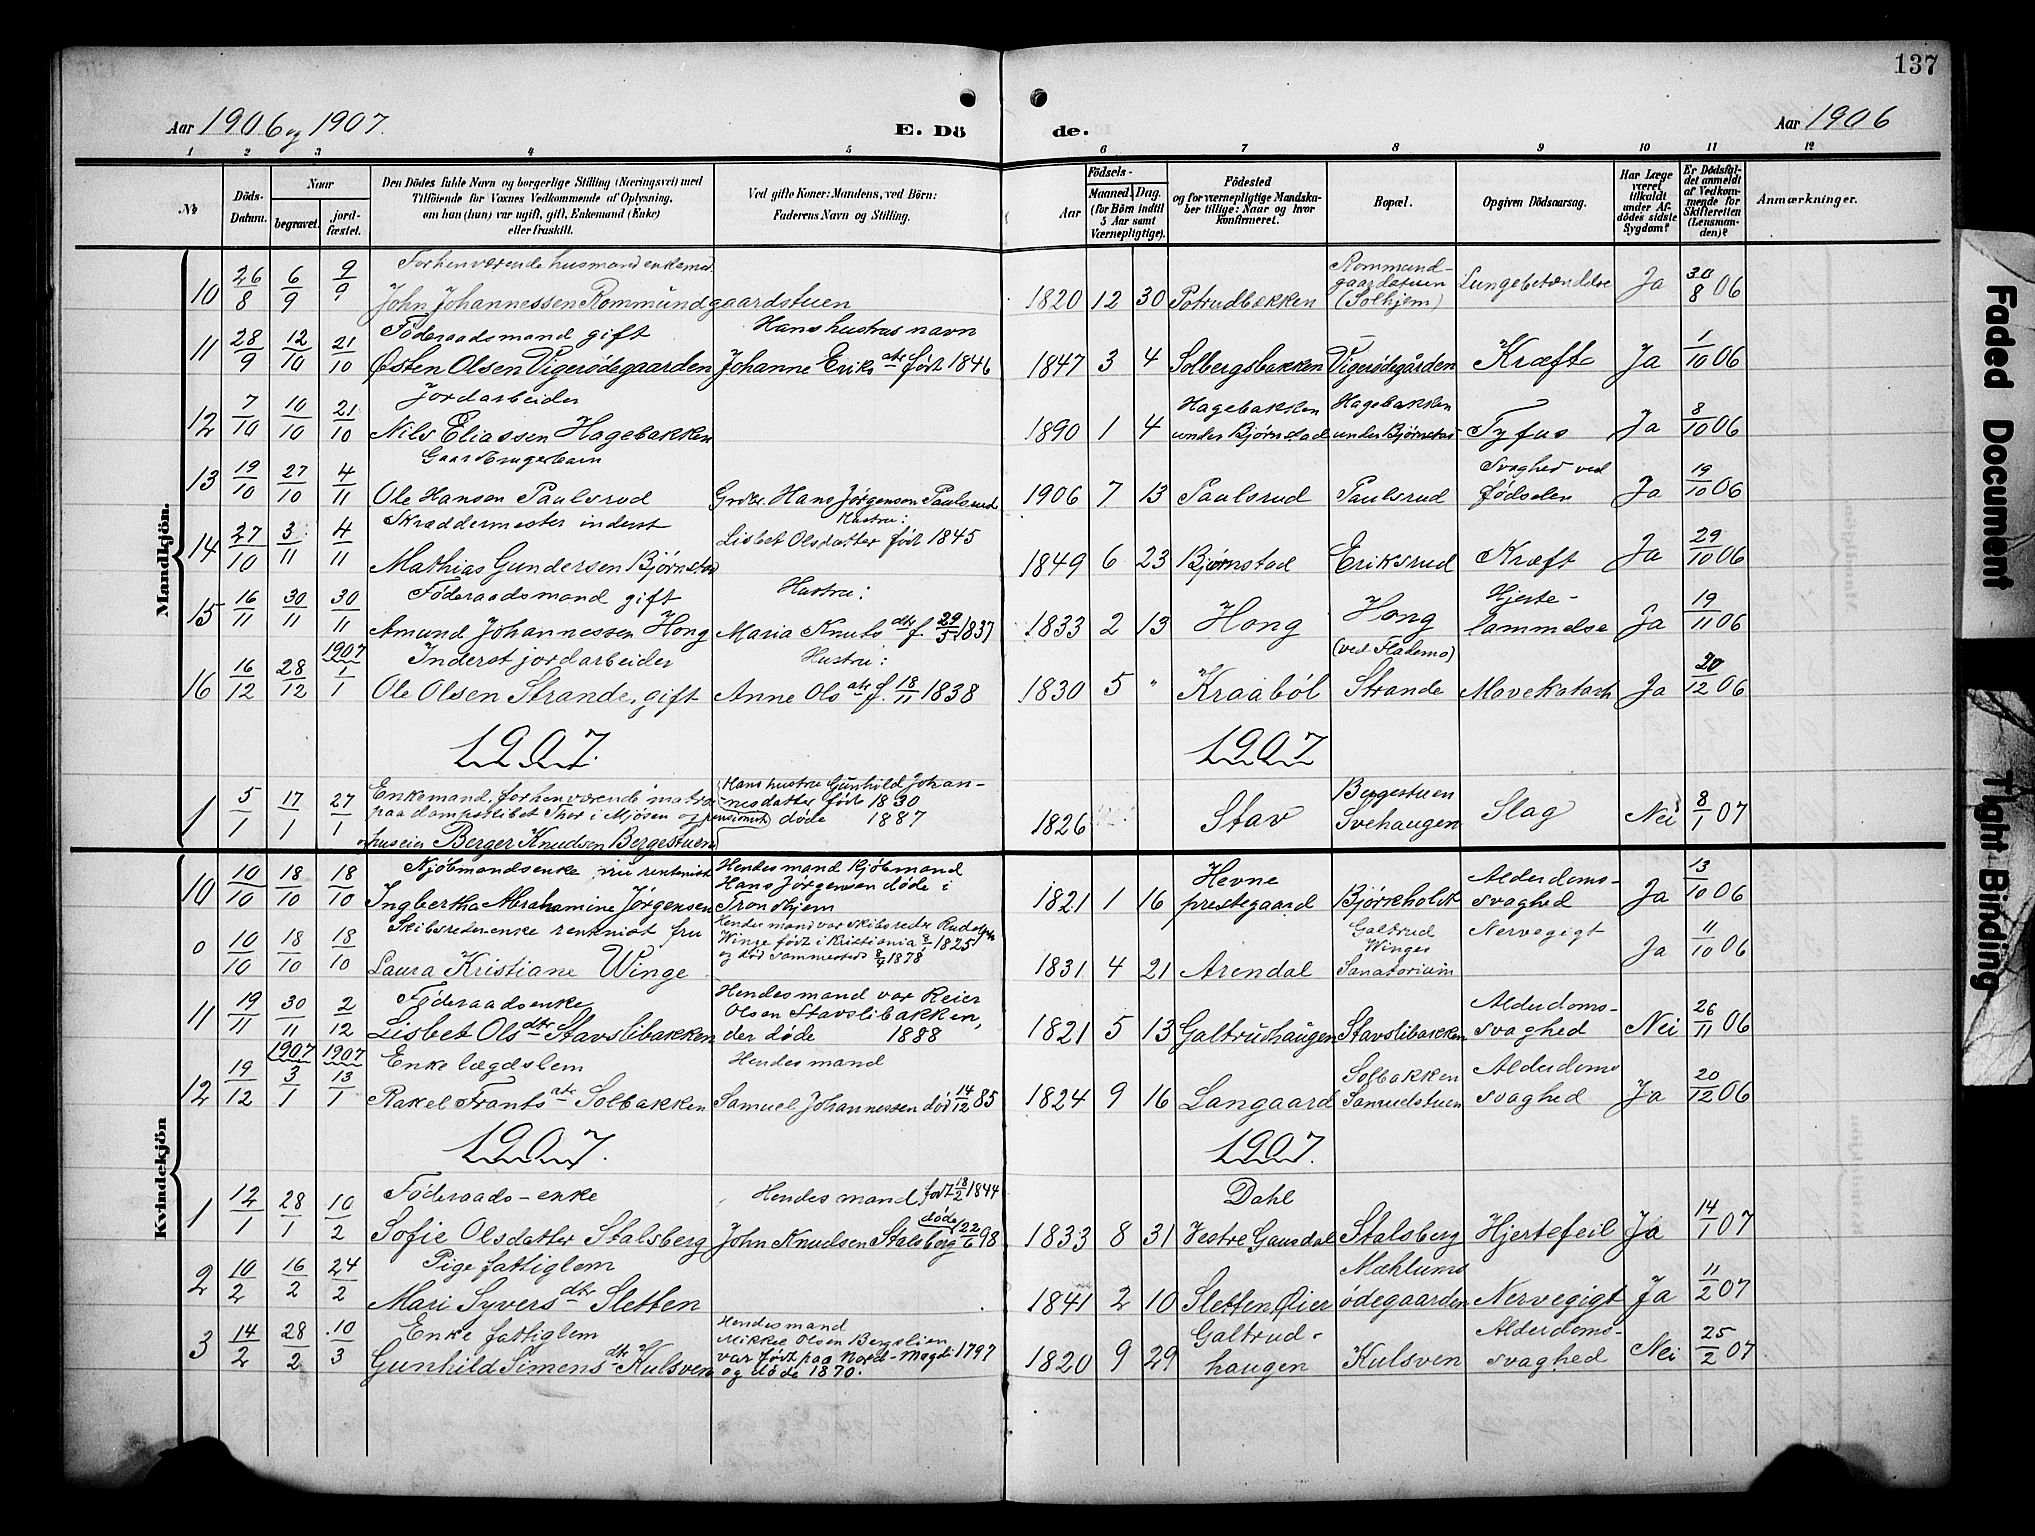 137
Aar 1906 og 1907.
E. Dö
de.
Aar 1906
1 2 3 4 5 6 7 8 9 10 11 12
№
Döds-Datum.
Naar
begravet.
jord-fæstet.
Den Dödes fulde Navn og borgerlige Stilling (Næringsvei) med
Tilföiende for Voxnes Vedkommende af Oplysning,
om han (hun) var ugift, gift, Enkemand (Enke)
eller fraskilt.
Ved gifte Koner: Mandens, ved Börn:
Faderens Navn og Stilling.
Födsels-
Aar
Maaned. Dag.
(for Börn indtil
5 Aar samt
Værnepligtige).
Födested
og for værnepligtige Mandska-
ber tillige: Naar og hvor
konfirmeret.
Bopæl.
Opgiven Dödsaarsag.
Har Læge
været
tilkaldt
under Af-
dödes sidste
Sygdom?
Er Dödsfal-
det anmeldt
af Vedkom-
mende for
Skifteretten
(Lensman-
den)?
Anmærkninger.
Mandkjön.
10 26/8 6/9 9/9 Forhenværende husmand enkemd.
John Johannessen Rommundgaardstuen
1820 12 30 Potrudbakken Rommund-
gaardstuen
(Solhjem) Lungebetændelse Ja 30/8 06
11 28/9 12/10 21/10 Föderaadsmand gift
Østen Olsen Vigerødegaarden
Hans hustrus navn
Johanne Eriks dtr født 1846
1847 3 4 Solbergsbakken Vigerødegården Kræft Ja 1/10 06
12 7/10 10/10 21/10 Jordarbeider
Nils Eliassen Hagebakken
1890 1 4 Hagebakken
under Bjørnstad Hagebakken
under Bjørnstad Tyfus Ja 8/10 06
13 19/10 27/10 4/11 Gaardbrugerbarn
Ole Hansen Paulsrud
Grdbr. Hans Jørgensen Paulsrud
1906 7 13 Paulsrud Paulsrud Svaghed ved
fødselen Ja 19/10 06
14 27/10 3/11 4/11 Skræddermester inderst
Mathias Gundersen Bjørnstad
Hustru:
Lisbet Olsdatter født 1845
1849 6 23 Bjørnstad Eriksrud Kræft Ja 29/10 06
15 16/11 30/11 30/11 Föderaadsmand gift
Amund Johannessen Hong
Hustru:
Maria Knuts dtr f. 29/5 1837
1833 2 13 Hong Hong
(ved Flademo) Hjerte-
lammelse Ja 19/11 06
16 16/12 28/12 1907 1/1 Inderst jordarbeider
Ole Olsen Strande, gift
Hustru:
Anne Ols dtr f. 18/11 1838
1830 5 " Kraabøl Strande Mavekatarh Ja 20/12 06
1907.
1907
1 5/1 17/1 27/1 Enkemand, forhenværende matros
paa dampskibet Thor i Mjøsen og pensionist
huseier Berger Knudsen Bergestuen
Hans hustru Gunhild Johan-
nesdatter født 1830
døde 1887
1826 Stav Bergestuen
Svehaugen Slag Nei 8/1 07
Kvindekjön
10 10/10 18/10 18/10 Kjöbmandsenke, fru rentenist
Ingbertha Abrahamine Jörgensen
Hendes mand kjöbmand
Hans Jørgensen døde i
Trondhjem
1821 1 16 Hevne
prestegaard Bjørkeholdt Alderdoms-
svaghed Ja 13/10 06
0 10/10 18/10 18/10 Skibsreder-enke rentenist fru
Laura Kristiane Winge
Hendes mand var Skibsreder Rudolph
Winge født i Kristiania 8/1 1825
og død sammesteds 8/9 1878
1831 4 21 Arendal Galtrud
Winges
Sanatorium Nervegigt Ja 11/10 06
11 19/11 30/11 2/12 Föderaadsenke
Lisbet Ols dtr Stavslibakken
Hendes mand var Reier
Olsen Stavslibakken,
der døde 1888
1821 5 13 Galtrudhaugen Stavslibakken Alderdoms-
svaghed Nei 26/11 06
12 19/12 1907 3/1 1907 13/1 Enke lægdslem
Rakel Frants dtr Solbakken
Hendes mand
Samuel Johannessen død 14/12 85
1824 9 16 Langaard Solbakken
Samuelstuen Alderdoms
svaghed Ja 20/12 06
1907.
1907.
1 12/1 28/1 10/2 Föderaads-enke
Sofie Olsdatter Stalsberg
Hendes mand født 18/2 1844
John Knudsen Stalsberg døde 22/6 98
1833 8 31 Dahl
Vestre Gausdal Stalsberg Hjertefeil Ja 14/1 07
2 10/2 16/2 24/2 Pige fattiglem
Mari Syvers dtr Sletten
1841 2 10 Sletten Øier Mæhlums
ødegaarden Nervegigt Ja 11/2 07
3 14/2 28/2 10/3 Enke fattiglem
Gunhild Simens dtr Kulsven
Hendes mand
Mikkel Olsen Bergslien
var født paa Nord-Magdi 1797
og døde 1870.
1820 9 29 Galtrud-
haugen Kulsven Alderdoms-
svaghed Nei 25/2 07
Faded Document
Tight Binding